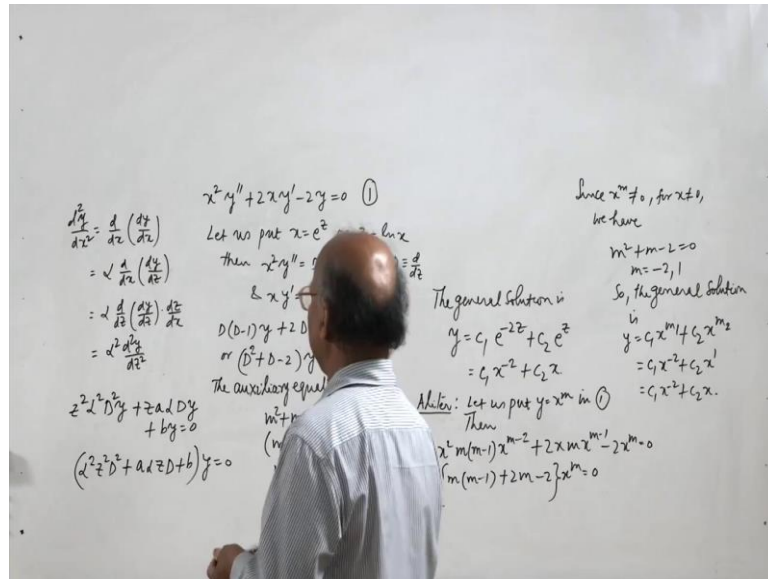 d²y/dx² = d/dx (dy/dx)
= α d/dx (dy/dz)
= α d/dz (dy/dz) · dz/dx
= α² d²y/dz²
z²α²D²y + zaαDy
+ by = 0
(α²z²D² + aαzD + b) y = 0
x²y'' + 2xy' - 2y = 0 ①
Let us put x = e^z ln x
then x²y'' = ≡ d/dz
& xy'
D(D-1)y + 2D
or (D² + D - 2) y
The auxiliary
m² +
(
The general solution is
y = c₁ e^{-2z} + c₂ e^z
= c₁ x^{-2} + c₂ x
Aliter: Let us put y = x^m in ①
Then
x² m(m-1) x^{m-2} + 2x m x^{m-1} - 2x^m = 0
{m(m-1) + 2m - 2} x^m = 0
Since x^m ≠ 0, for x ≠ 0,
we have
m² + m - 2 = 0
m = -2, 1
So, the general solution
is
y = c₁ x^{m₁} + c₂ x^{m₂}
= c₁ x^{-2} + c₂ x^1
= c₁ x^{-2} + c₂ x.